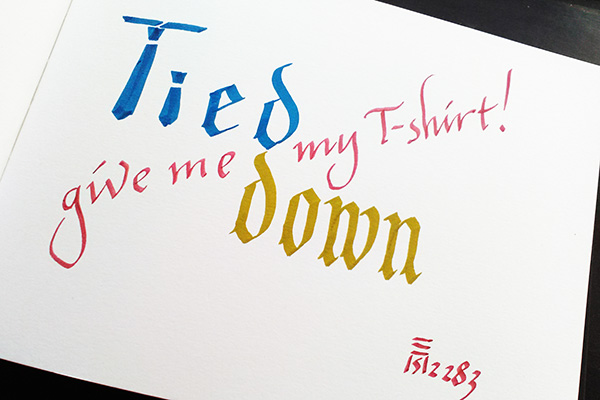 Tied
give me my T-shirt!
down